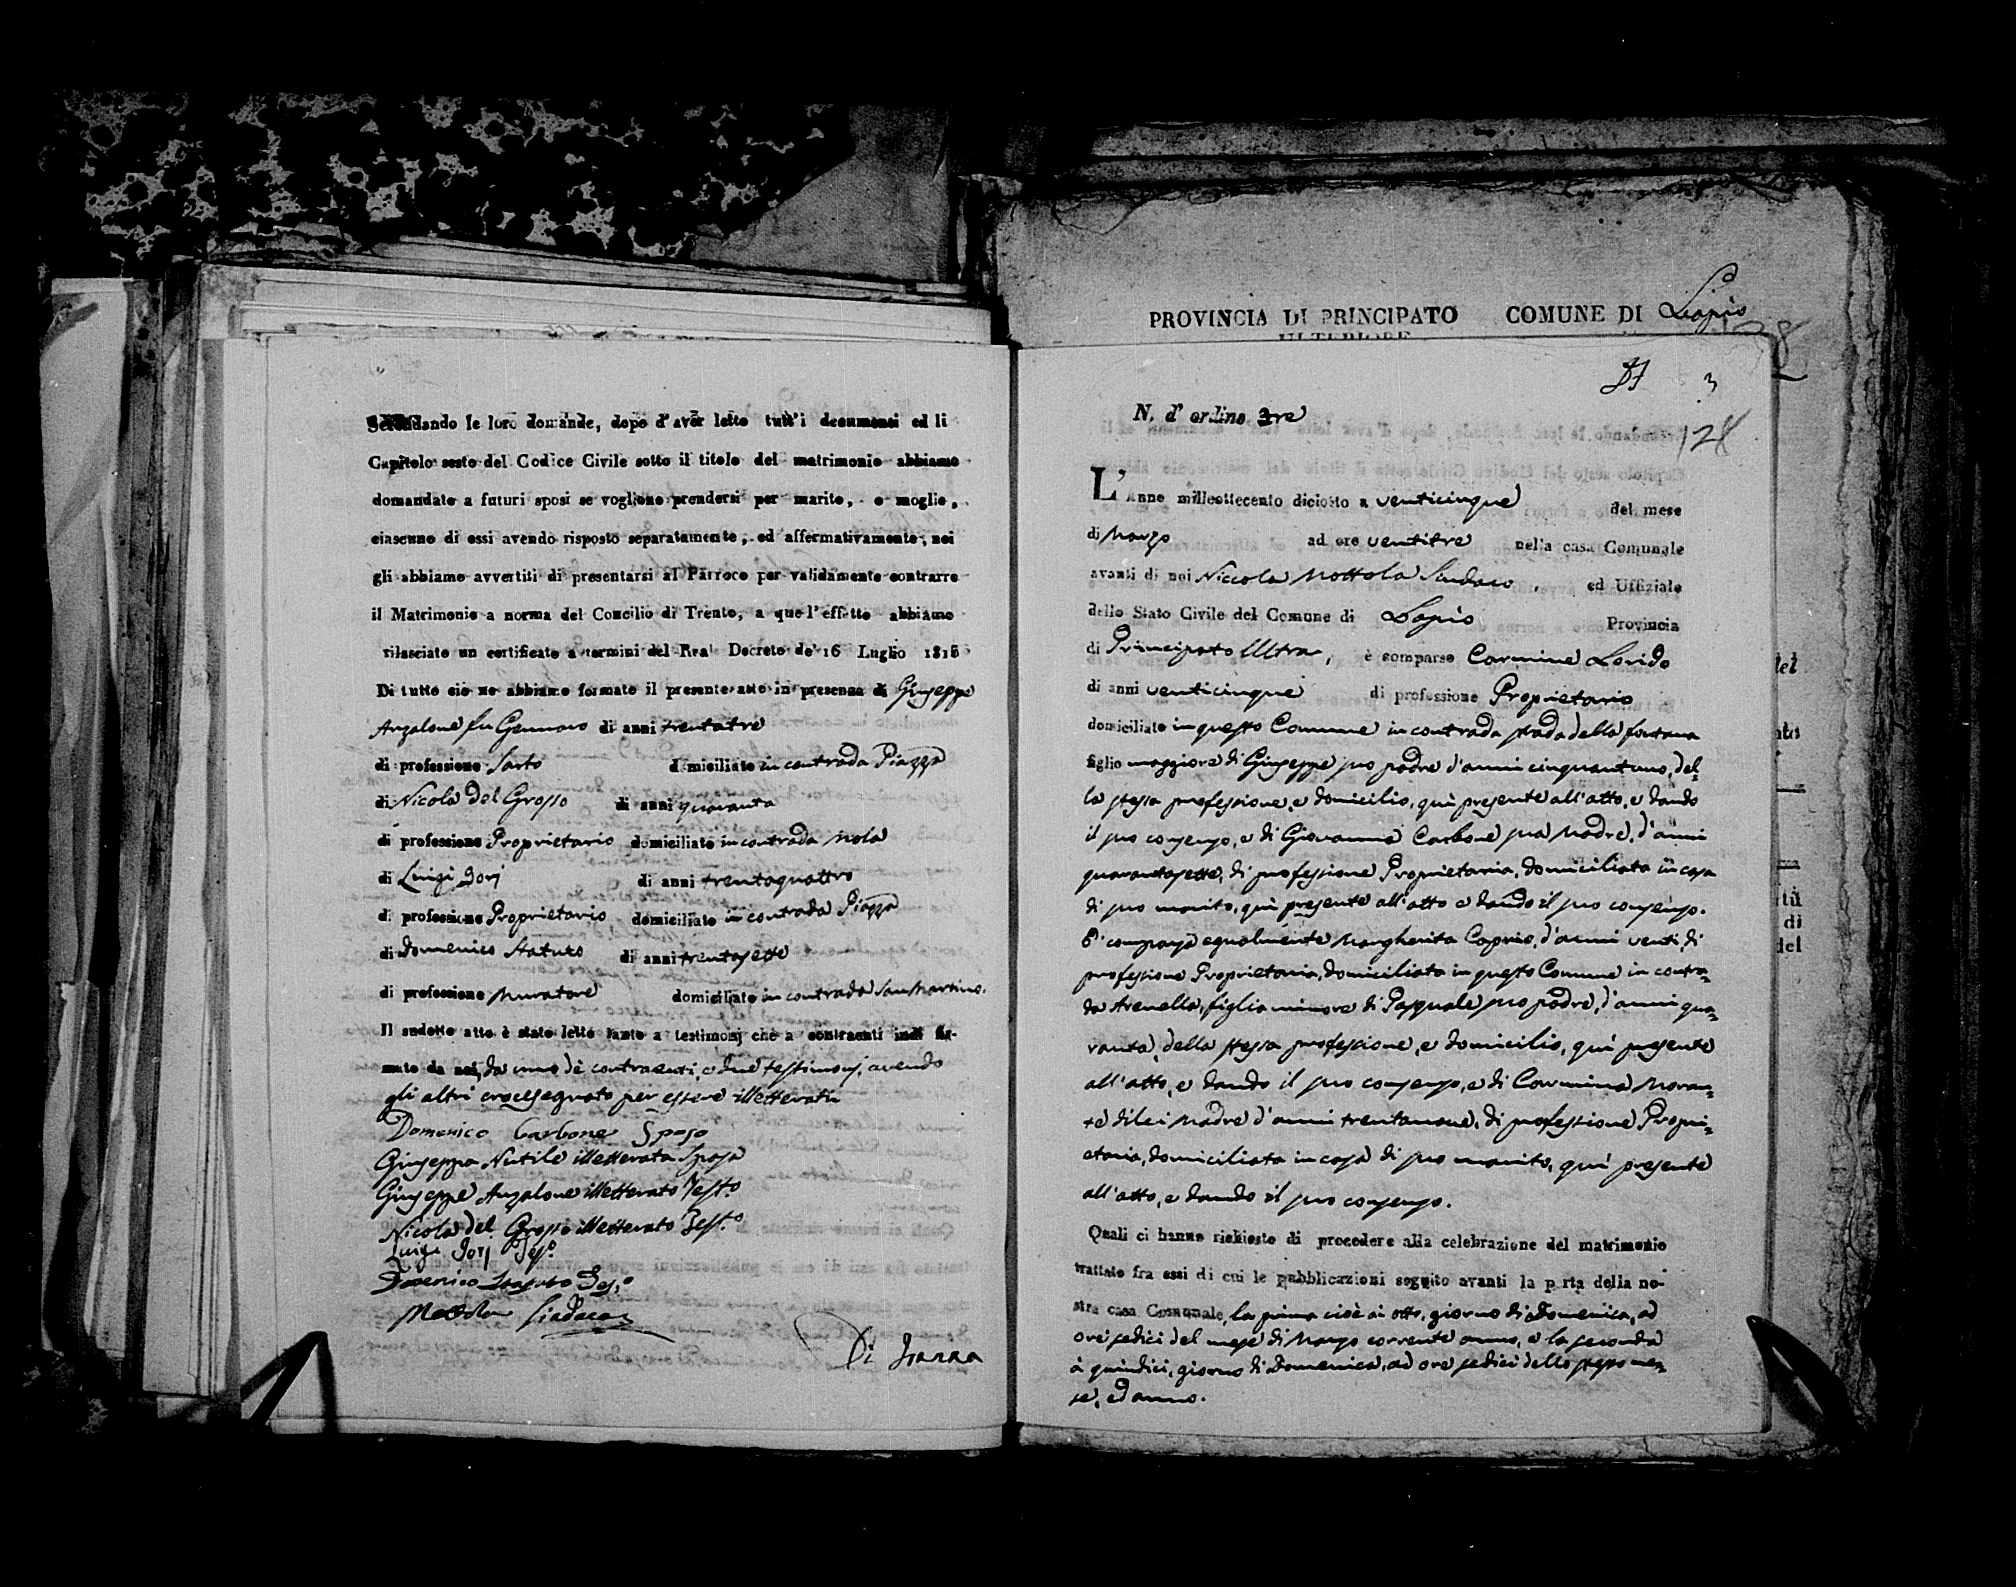 Secondando le loro domande, dopo d'aver letto tutt'i documenti ed li
Capitolo sesto del Codice Civile sotto il titolo del matrimonio abbiamo
domandato a futuri sposi se vogliono prendersi per marito, e moglie,
ciascuno di essi avendo risposto separatamente, ed affermativamente, noi
gli abbiamo avvertiti di presentarsi al Parroco per validamente contrarre
il Matrimonio a norma del Concilio di Trento, a quel'effetto abbiamo
rilasciato un certificato a termini del Real Decreto de' 16 Luglio 1815
Di tutto ciò ne abbiamo formato il presente atto in presenza di Giuseppe
Anzalone fu Gennaro di anni trentatre
di professione Sarto domiciliato in contrada Piazza
di Nicola Del Grosso di anni quaranta
di professione Proprietario domiciliato in contrada Mola
di Luigi Iorj di anni trentaquattro
di professione Proprietario domiciliato in contrada Piazza
di Domenico Staturo di anni trentasette
di professione Muratore domiciliato in contrada San Martino.
Il sudetto atto è stato letto tanto a testimonj che a contraenti indi fir-
mato da noi, da uno dè contraenti, e due testimonj, avendo
gli altri crocesegnato per essere illetterati
Domenico Carbone Sposo
Giuseppa Nutile illetterata Sposa
Giuseppe Anzalone illetterato Testo
Nicola del Grosso illetterato Testo
Luigi Iorj Teso
Domenico Staturo Teso
Mottola Sindaco
Di Ianna
PROVINCIA DI PRINCIPATO COMUNE DI Lapio
ULTERIORE
3
128
N. d' ordine tre
L'Anno milleottocento diciotto a venticinque del mese
di Marzo ad ore ventitre nella casa Comunale
avanti di noi Niccola Mottola Sindaco, ed Uffiziale
dello Stato Civile del Comune di Lapio Provincia
di Principato Ultra, è comparso Carmine Lorido
di anni venticinque di professione Proprietario
domiciliato in questo Comune in contrada strada della fontana
figlio maggiore di Giuseppe suo padre d'anni cinquantuno, del-
la stessa professione, e domicilio, quì presente all'atto, e dando
il suo consenso, e di Giovanna Carbone sua Madre, d'anni
quarantasette, di professione Proprietaria, domiciliata in casa
di suo marito, quì presente all'atto e dando il suo consenso.
E' comparsa egualmente Margherita Caprio, d'anni venti, di
professione Proprietaria, domiciliata in questo Comune in contra-
da Arenella, figlia minore di Pasquale suo padre, d'anni qua-
ranta, della stessa professione, e domicilio, quì presente
all'atto, e dando il suo consenso, e di Carmina Moran-
te di lei Madre d'anni trentanove, di professione Propri-
etaria, domiciliata in casa di suo marito, quì presente
all'atto, e dando il suo consenso.
Quali ci hanno richiesto di procedere alla celebrazione del matrimonio
trattato fra essi di cui le pubblicazioni seguito avanti la porta della no-
stra casa Comunale, la prima cioè ai otto, giorno di Domenica, ad
ore sedici del mese di Marzo corrente anno, e la seconda
à quindici, giorno di Domenica, ad ore sedici dello stesso me-
se, ed anno.